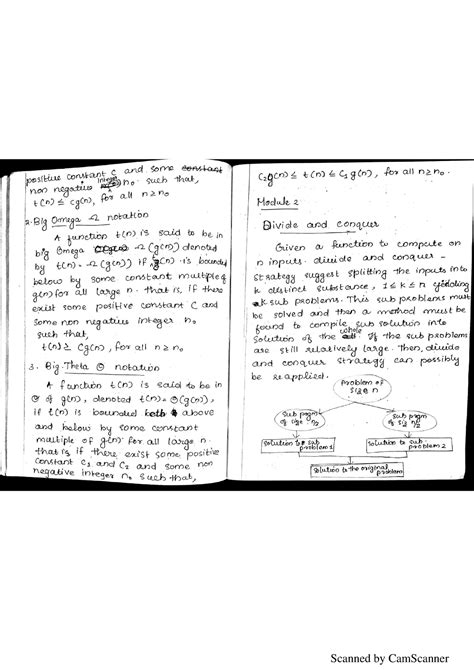 positive constant c and some constant
non negative integer n₀ such that,
t(n) ≤ cg(n), for all n ≥ n₀
2. Big Omega Ω notation
A function t(n) is said to be in
big Omega Ω(g(n)) denoted
by t(n) = Ω(g(n)) if g(n) is bounded
below by some constant multiple of
g(n) for all large n. that is, if there
exist some positive constant C and
some non negative integer n₀
such that,
t(n) ≥ Cg(n), for all n ≥ n₀
3. Big Theta Θ notation
A function t(n) is said to be in
Θ of g(n), denoted t(n) = Θ(g(n)),
if t(n) is bounded both above
and below by some constant
multiple of g(n) for all large n.
that is, if there exist some positive
constant C₁ and C₂ and some non
negative integer n₀ such that,
C₂g(n) ≤ t(n) ≤ C₁ g(n), for all n ≥ n₀.
Module 2
Divide and conquer
Given a function to compute on
n inputs. divide and conquer -
strategy suggest splitting the inputs into
k distinct substance, 1 ≤ k ≤ n yielding
k sub problems. This sub problems must
be solved and then a method must be
found to compile sub solution into
solution of the whole. If the sub problems
are still relatively large. Then, divide
and conquer strategy can possibly
be reapplied.
Problem of
size n
Sub prgm
of size n/2
Sub prgm
of siz n/2
Solution to sub
problem 1
Solution to sub-
problem 2
Solution to the original
problem
Scanned by CamScanner